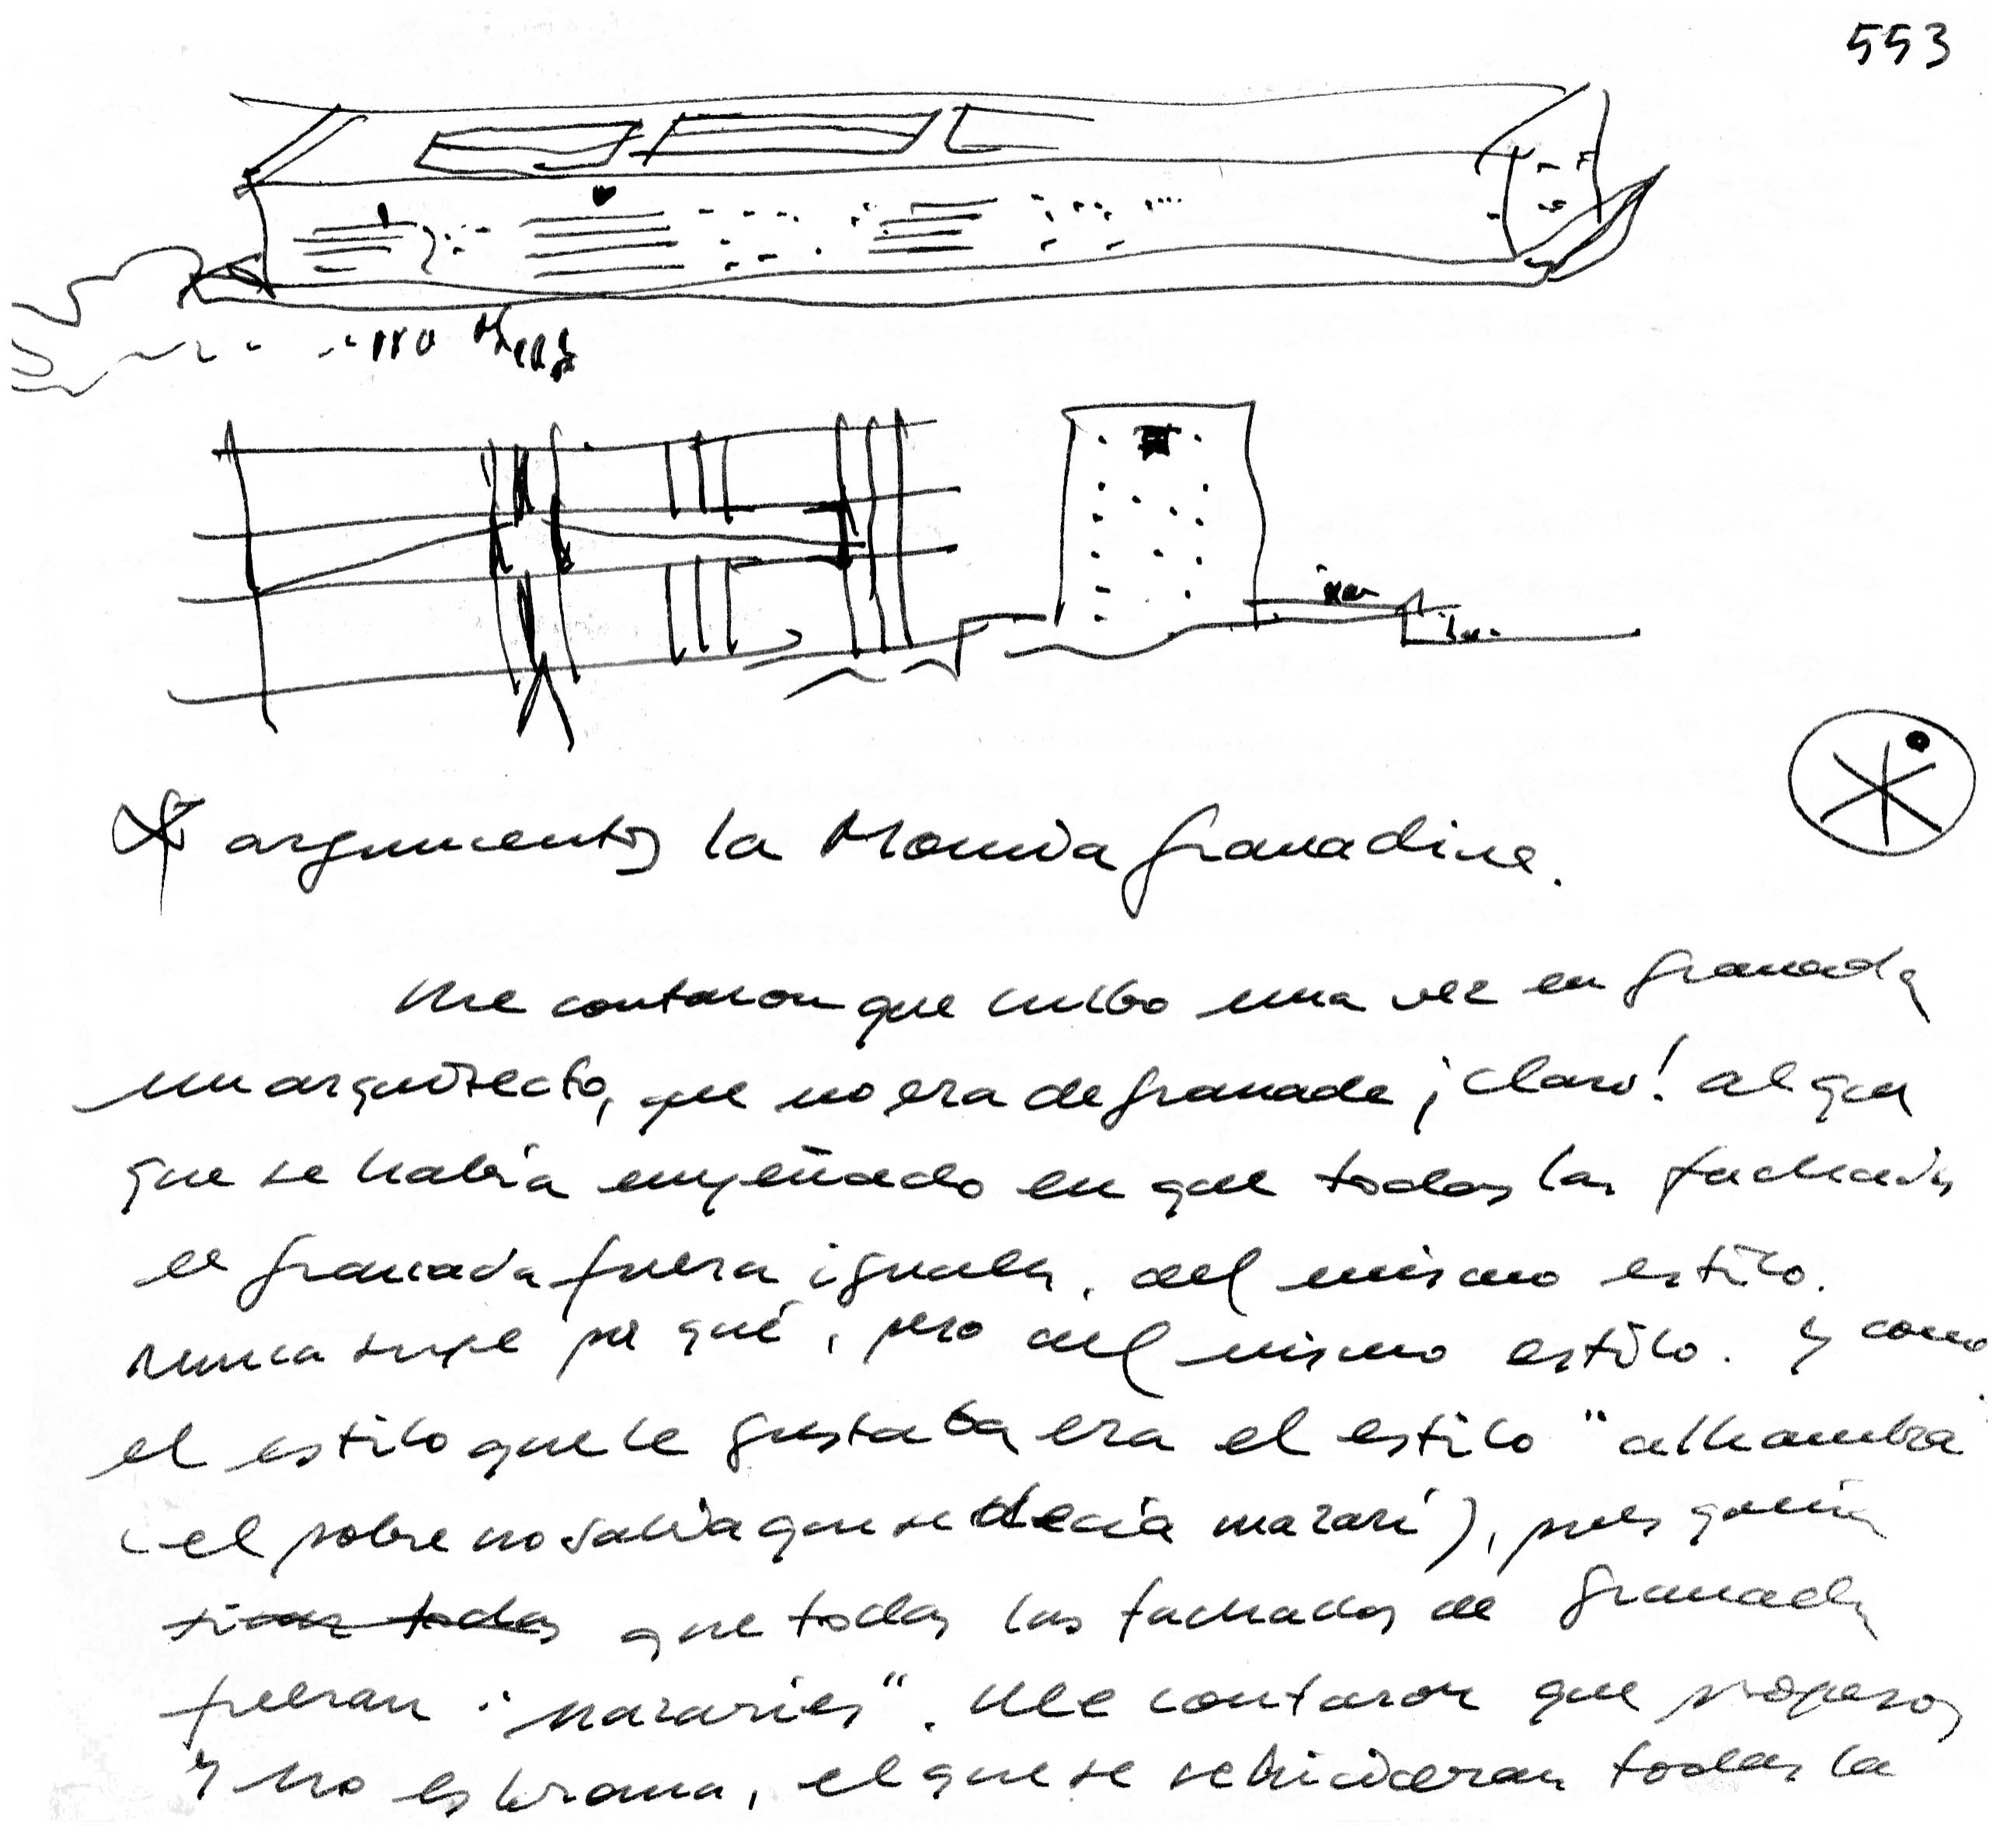 553
argumentos la Movida Granadina.
Me contaron que hubo una vez en Granada
un arquitecto, que no era de Granada ¡claro! al que
que se había empeñado en que todas las fachadas
de Granada fuera iguales, del mismo estilo.
Nunca supe por qué, pero del mismo estilo. Y como
el estilo que le gustaba era el estilo "alhambra"
(el pobre no sabía que se decía nazarí), pues quería
que todas las fachadas de Granada
fueran "nazaries". Me contaron que propuso,
y no es broma, el que se hicieran todas la